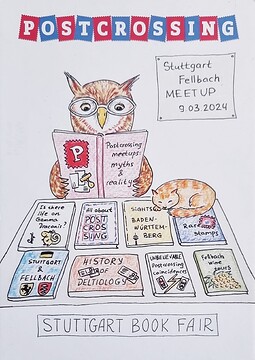 POSTCROSSING
Stuttgart
Fellbach
MEETUP
9.03.2024
P
Postcrossing
meetups
myths
&
reality
Is there
life on
Gamma
Draconis?
All about
POST
CROS
SING
SIGHTS
BADEN-
WÜRTTEM-
BERG
Rare
stamps
STUTTGART
&
FELLBACH
HISTORY
OF
DELTIOLOGY
UNBELIEVABLE
Postcrossing
coincidences
Fellbach
wine
tours
STUTTGART BOOK FAIR